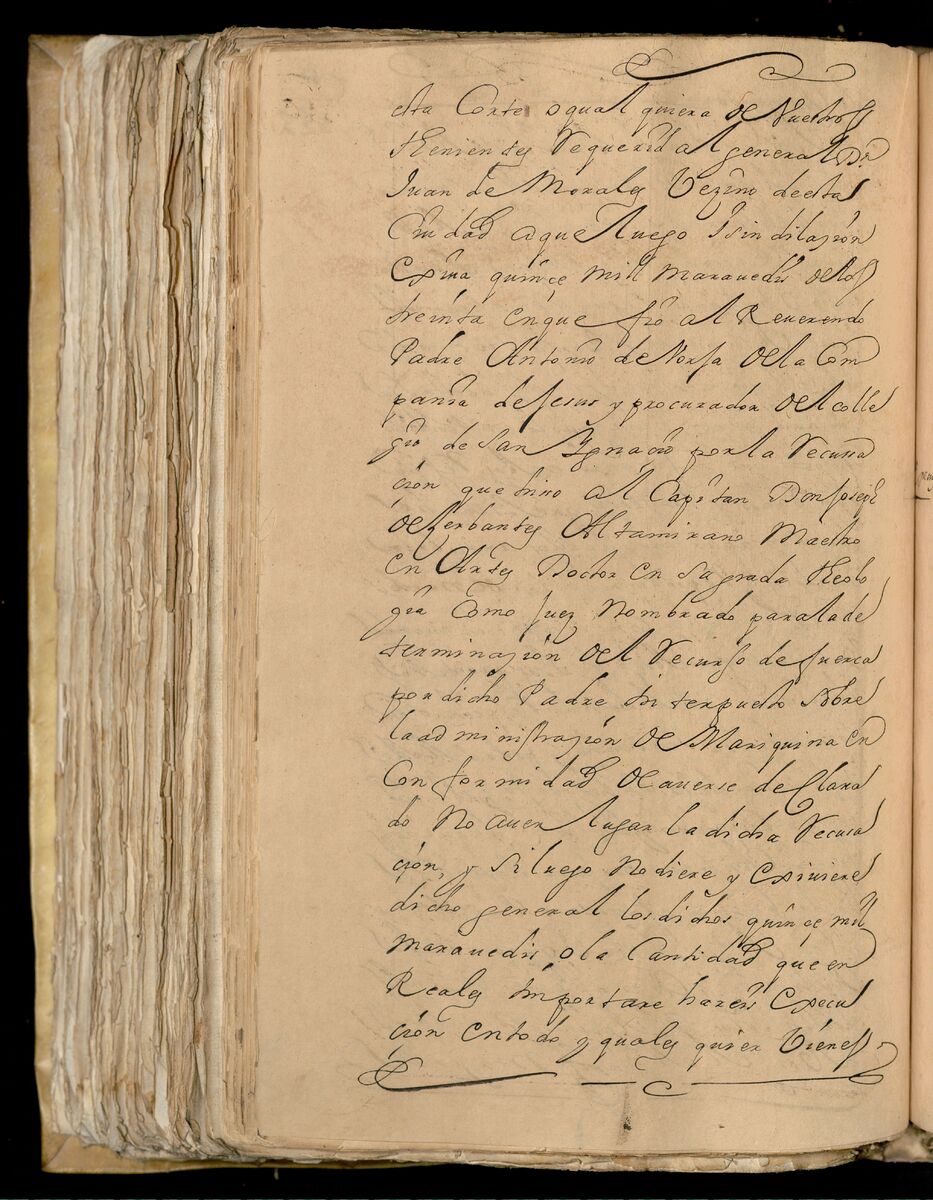 esta Corte o qual quiera de Vuestros
thenientes Requerid al general Dn
Juan de Morales Vezino de esta
Ciudad a que luego i sin dilaçion
exiua quince mill marauedis de los
treinta en que fio al Reuerendo
Padre Antonio de Borja de la Com
pania de Jesus y procurador del colle
gio de San Ygnacio por la Recusa
cion que hiso al Capitan Don Joseph
de Zerbantes Altamirano Maestro
en Artes Doctor en Sagrada Theolo
gia Como Juez Nombrado para la de
terminaçion del Recurso de fuerca
por dicho Padre interpuesto sobre
la administraçion de Mariquina en
Conformidad de auerse declara
do no auer lugar la dicha Recusa
cion, y si luego no diere y exiuiere
dicho general los dichos quince mill
marauedis o la Cantidad que en
Reales importare hareis execu
cion en todo y quales quier Vienes